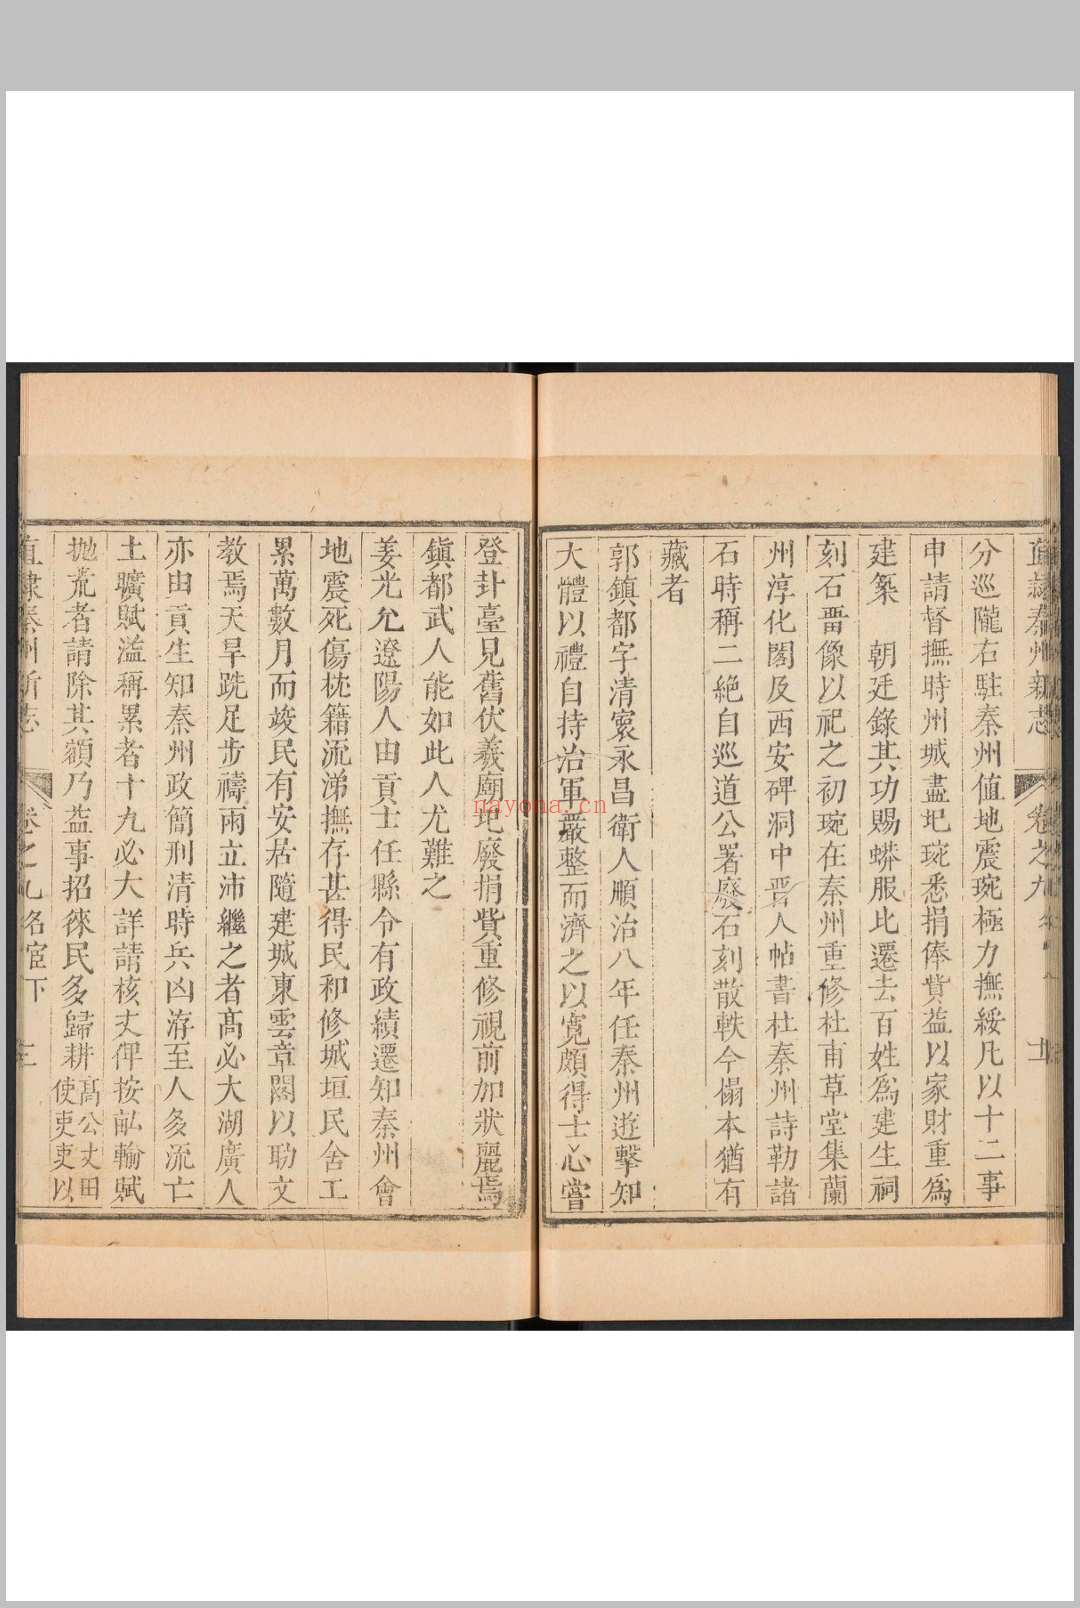 直隷秦州新志 卷之九
分巡隴右駐秦州值地震琬極力撫綏凡以十二事
申請督撫時州城盡圮琬悉捐俸貲益以家財重爲
建築 朝廷錄其功賜蟒服比遷去百姓爲建生祠
刻石畱像以祀之初琬在秦州重修杜甫草堂集蘭
州淳化閣及西安碑洞中晋人帖書杜秦州詩勒諸
石時稱二絶自巡道公署廢石刻散軼今搨本猶有
藏者
郭鎮都字清寰永昌衛人順治八年任秦州遊擊知
大體以禮自持治軍嚴整而濟之以寛頗得士心嘗
登卦臺見舊伏羲廟圯廢捐貲重修視前加狀麗焉
鎮都武人能如此人尤難之
姜光允遼陽人由貢士任縣令有政績遷知秦州會
地震死傷枕籍流涕撫存甚得民和修城垣民舍工
累萬數月而竣民有安居隨建城東雲章閣以助文
教焉天旱跣足步禱雨立沛繼之者高必大湖廣人
亦由貢生知秦州政簡刑清時兵凶洊至人多流亡
土曠賦濫稱累者十九必大詳請核丈俾按畝輸賦
抛荒者請除其額乃益事招徠民多歸耕
高公丈田
使吏吏以
直隷秦州新志 卷之九名宦下
nayona.cn